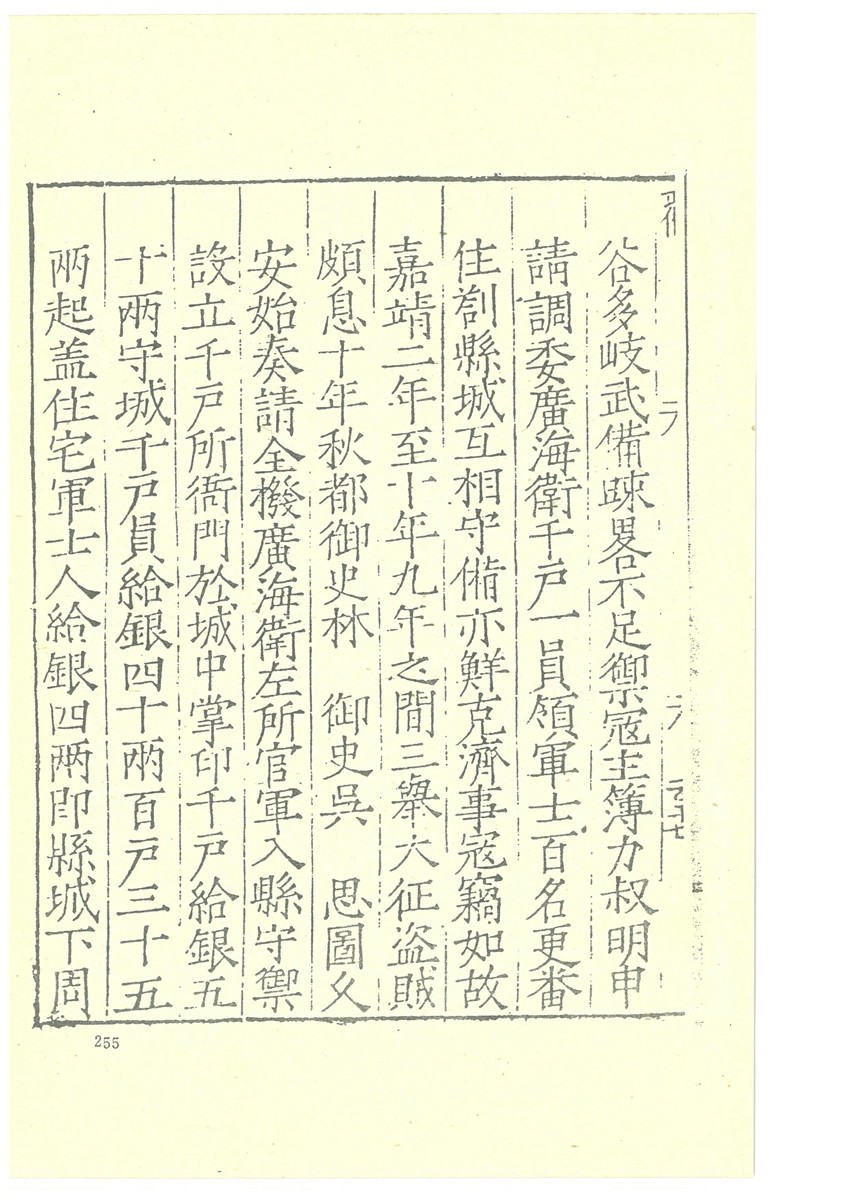 谷多岐武備踈畧不足禦寇主簿力叔明申
請調委廣海衛千戸一員領軍士百名更畨
住剳縣城互相守備亦鮮克濟事寇竊如故
嘉靖二年至十年九年之間三舉大征盗賊
頗息十年秋都御史林　御史吳　思圖乆
安始奏請全撥廣海衛左所官軍入縣守禦
設立千戸所衙門於城中掌印千戸給銀五
十兩守城千戸員給銀四十兩百戸三十五
兩起盖住宅軍士人給銀四兩即縣城下周
255